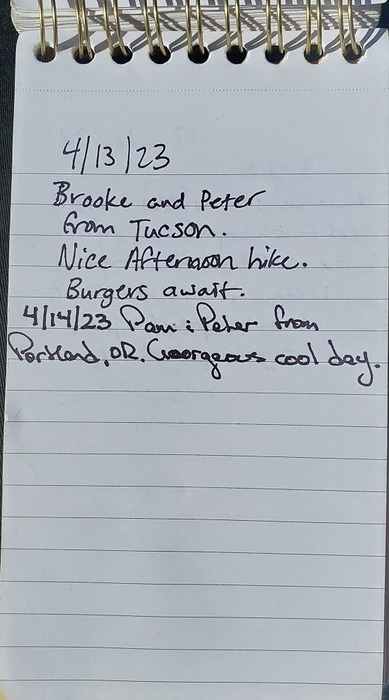 4/13/23
Brooke and Peter
from Tucson.
Nice Afternoon hike.
Burgers await.
4/14/23 Pam & Peter from
Portland, OR. Georgeous cool day.